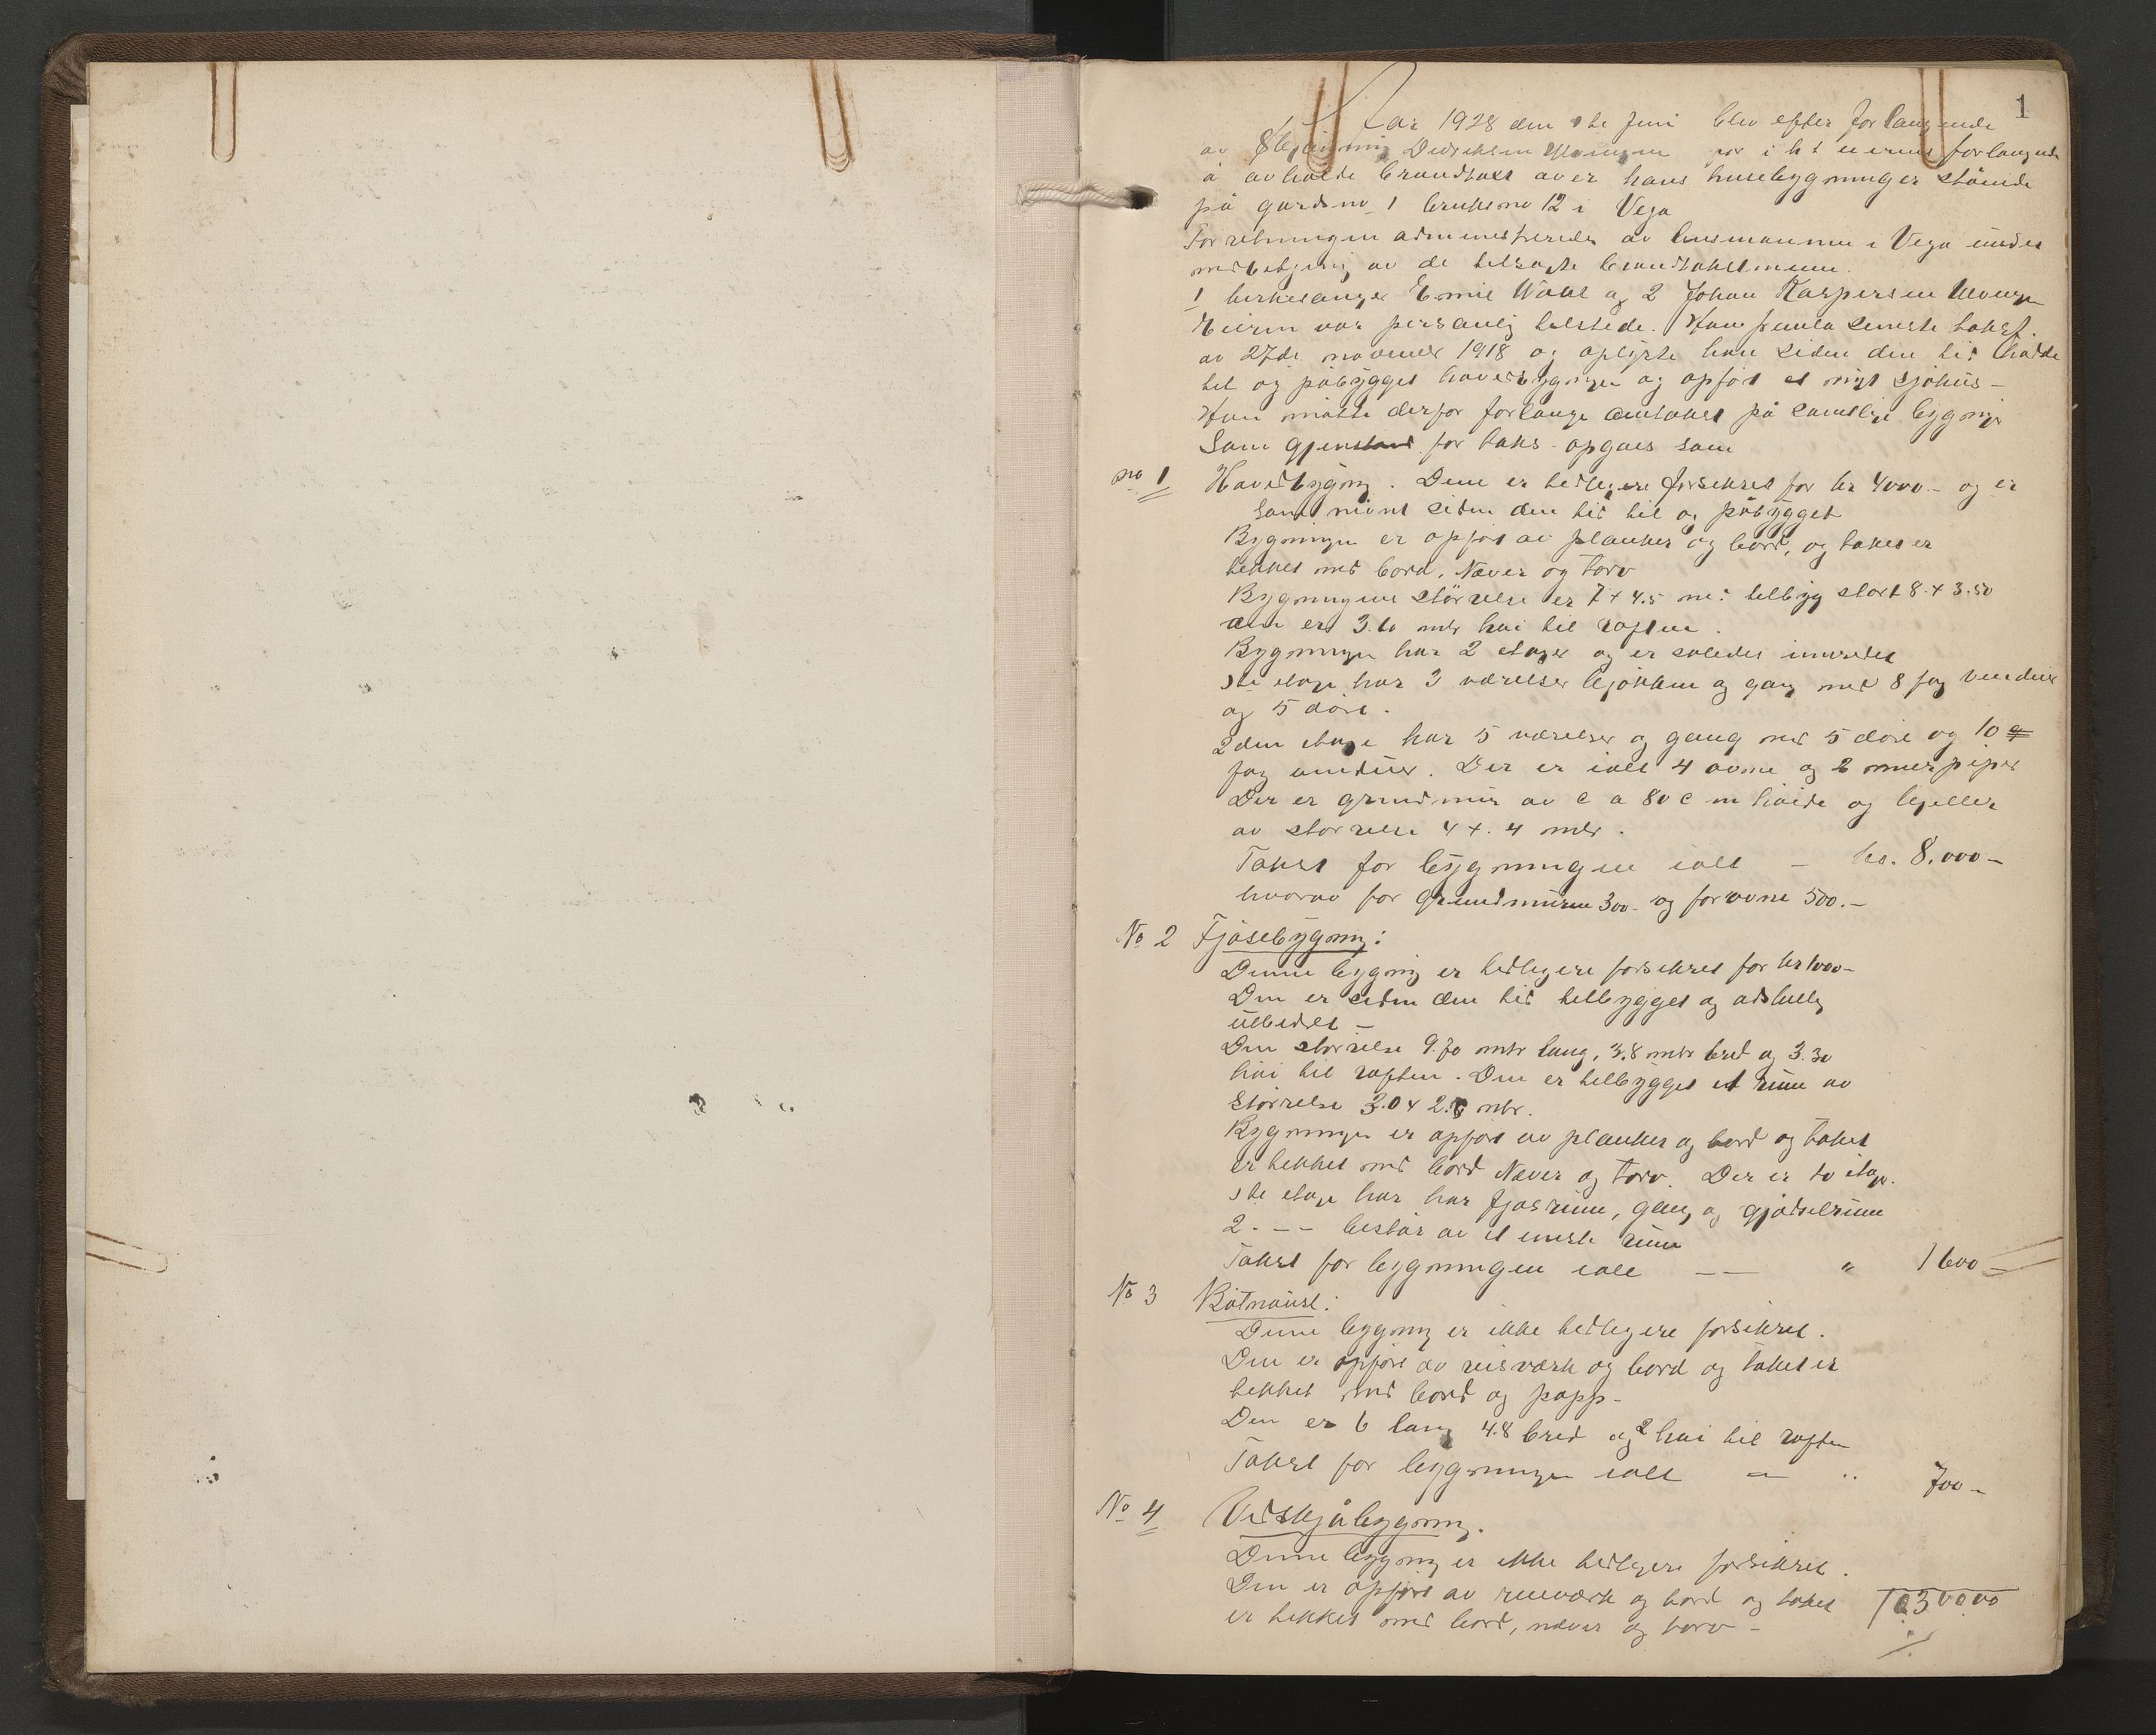 1
Aar 1928 den 1ste Juni blev efter forlangende
av Didriksen forlangende
å avholde brandtakst over hans husebygninger stående
på gårdsno 1 bruksno 12 i Vega
Forretningen administreredes av lensmannen i Vega under
medbetjening av de tilsagte brandtakstmenn.
1 kirkesanger Emil Wahl og 2 Johan Kaspersen
Eieren var personlig tilstede. Han fremla seneste takst
av 27de november 1918 og oplyste han siden den tid hadde
til og påbygget hovedbygningen og opført et nyt sjøhus –
Han måtte derfor forlange omtakst på samtlige bygninger
Som gjenstand for takst opgaes som
no 1 Hovedbygning. Denne er tidligere forsikret for kr 4000.– og er
som nevnt siden den tid til og påbygget
Bygningen er opført av planker og bord, og taket er
tekket med bord, Næver og torv
Bygningens størrelse er 7 x 4.5 m: tilbygg stort 8 x 3.50
den er 3.60 mtr høi til raften.
Bygningen har 2 etager og er således innredet
1ste etage har 3 værelser kjøkken og gang med 8 fag vinduer
og 5 døre.
2den etage har 5 værelser og gang med 5 døre og 10
fag vinduer. Der er ialt 4 ovne og 2 murpiper
Der er grundmur av ca 80 cm høide og kjeller
av størrelse 4 x 4 mtr.
Takst for bygningen ialt – kr. 8.000–
hvorav for grundmuren 300– og for ovne 500.–
No 2 Fjøsebygning:
Denne bygning er tidligere forsikret for kr 1000–
Den er siden den tid tilbygget og adskillig
utbedret –
Den størrelse 9.70 mtr lang, 3.8 mtr bred og 3.30
høi til raften. Den er tilbygget et rum av
Størrelse 3.0 x 2. mtr.
Bygningen er opført av planker og bord og taket
er tekket med bord Næver og torv. Der er to etage.
1ste etage har har fjøsrum, gang og gjødselrum
2. – – består av et eneste rum
Takst for bygningen ialt — " 1600–
No 3 Båtnaust:
Denne bygning er ikke tidligere forsikret.
Den er opført av reisværk og bord og taket er
tekket med bord og papp–
Den er 6 lang 4.8 bred og 2 høi til raften
Takst for bygningen ialt – " 700–
No 4 Vedskjåbygning.
Denne bygning er ikke tidligere forsikret.
Den er opført av reisværk og bord og taket
er tekket med bord, næver og torv –
10300.00